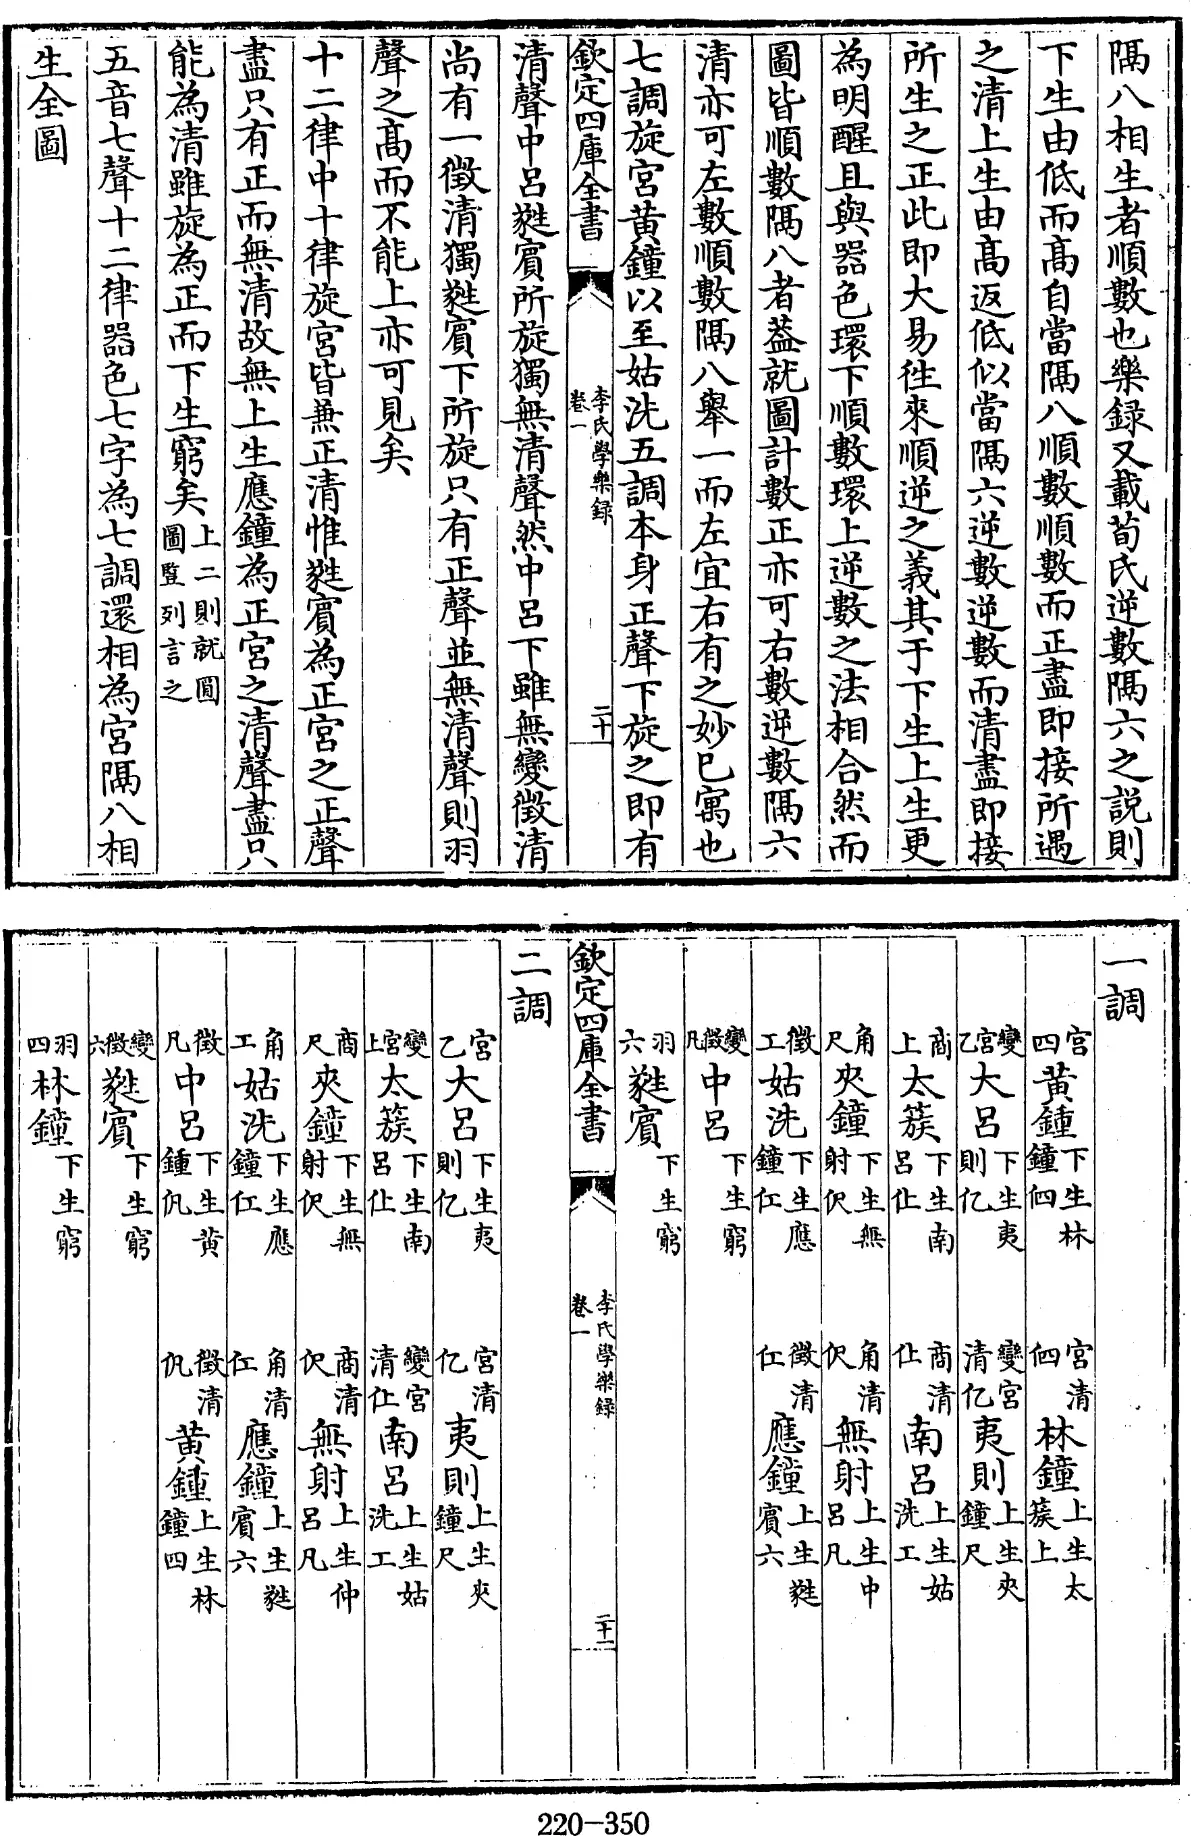 隔八相生者順數也樂録又載荀氏逆數隔六之説則
下生由低而髙自當隔八順數順數而正盡即接所遇
之清上生由髙返低似當隔六逆數逆數而清盡即接
所生之正此即大易徃來順逆之義其于下生上生更
為明醒且與器色環下順數環上逆數之法相合然而
圖皆順數隔八者葢就圖計數正亦可右數逆數隔六
清亦可左數順數隔八舉一而左宜右有之妙已寓也
七調旋宮黄鐘以至姑洗五調本身正聲下旋之即有
欽定四庫全書
李氏學樂録
卷一
二十
清聲中呂蕤賓所旋獨無清聲然中呂下雖無變徵清
尚有一徵清獨蕤賓下所旋只有正聲並無清聲則羽
聲之髙而不能上亦可見矣
十二律中十律旋宮皆兼正清惟蕤賓為正宮之正聲
盡只有正而無清故無上生應鐘為正宮之清聲盡只
能為清雖旋為正而下生窮矣上二則就圓圖竪列言之
五音七聲十二律器色七字為七調還相為宮隔八相
生全圖
一調
宮四黄鍾下生林鐘伵 宮清伵林鐘上生太蔟上
變宮乙大呂下生夷則亿 變宮清亿夷則上生夾鐘尺
商上太蔟下生南呂仩 商清仩南呂上生姑洗工
角尺夾鐘下生無射伬 角清伬無射上生中呂凡
徵工姑洗下生應鐘仜 徵清仜應鐘上生蕤賓六
變徵凡中呂下生窮
羽六蕤賓下生窮
欽定四庫全書
李氏學樂録
卷一
二十一
二調
宮乙大呂下生夷則亿 宮清亿夷則上生夾鐘尺
變宮上太蔟下生南呂仩 變宮清仩南呂上生姑洗工
商尺夾鐘下生無射伬 商清伬無射上生仲呂凡
角工姑洗下生應鐘仜 角清仜應鐘上生蕤賓六
徵凡中呂下生黄鍾㐳 徵清㐳黄鍾上生林鐘四
變徵六蕤賓下生窮
羽四林鐘下生窮
220-350